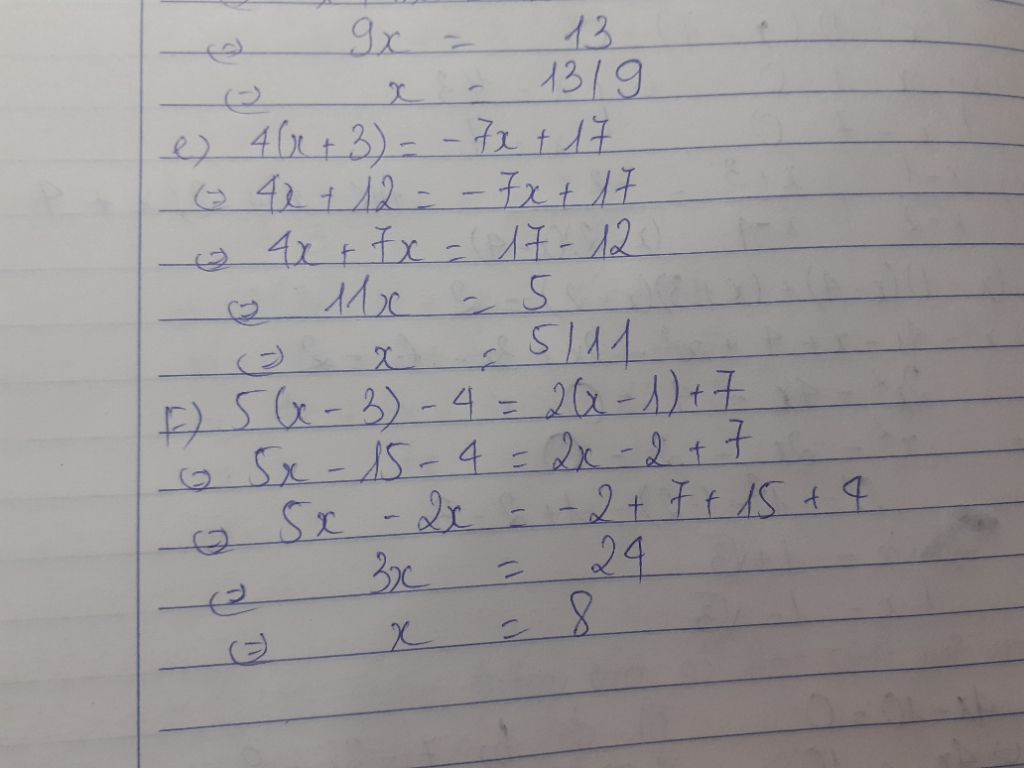 ⇔ 9x = 13
⇔ x = 13/9
e) 4(x + 3) = -7x + 17
⇔ 4x + 12 = -7x + 17
⇔ 4x + 7x = 17 - 12
⇔ 11x = 5
⇔ x = 5/11
F) 5(x - 3) - 4 = 2(x - 1) + 7
⇔ 5x - 15 - 4 = 2x - 2 + 7
⇔ 5x - 2x = -2 + 7 + 15 + 4
⇔ 3x = 24
⇔ x = 8